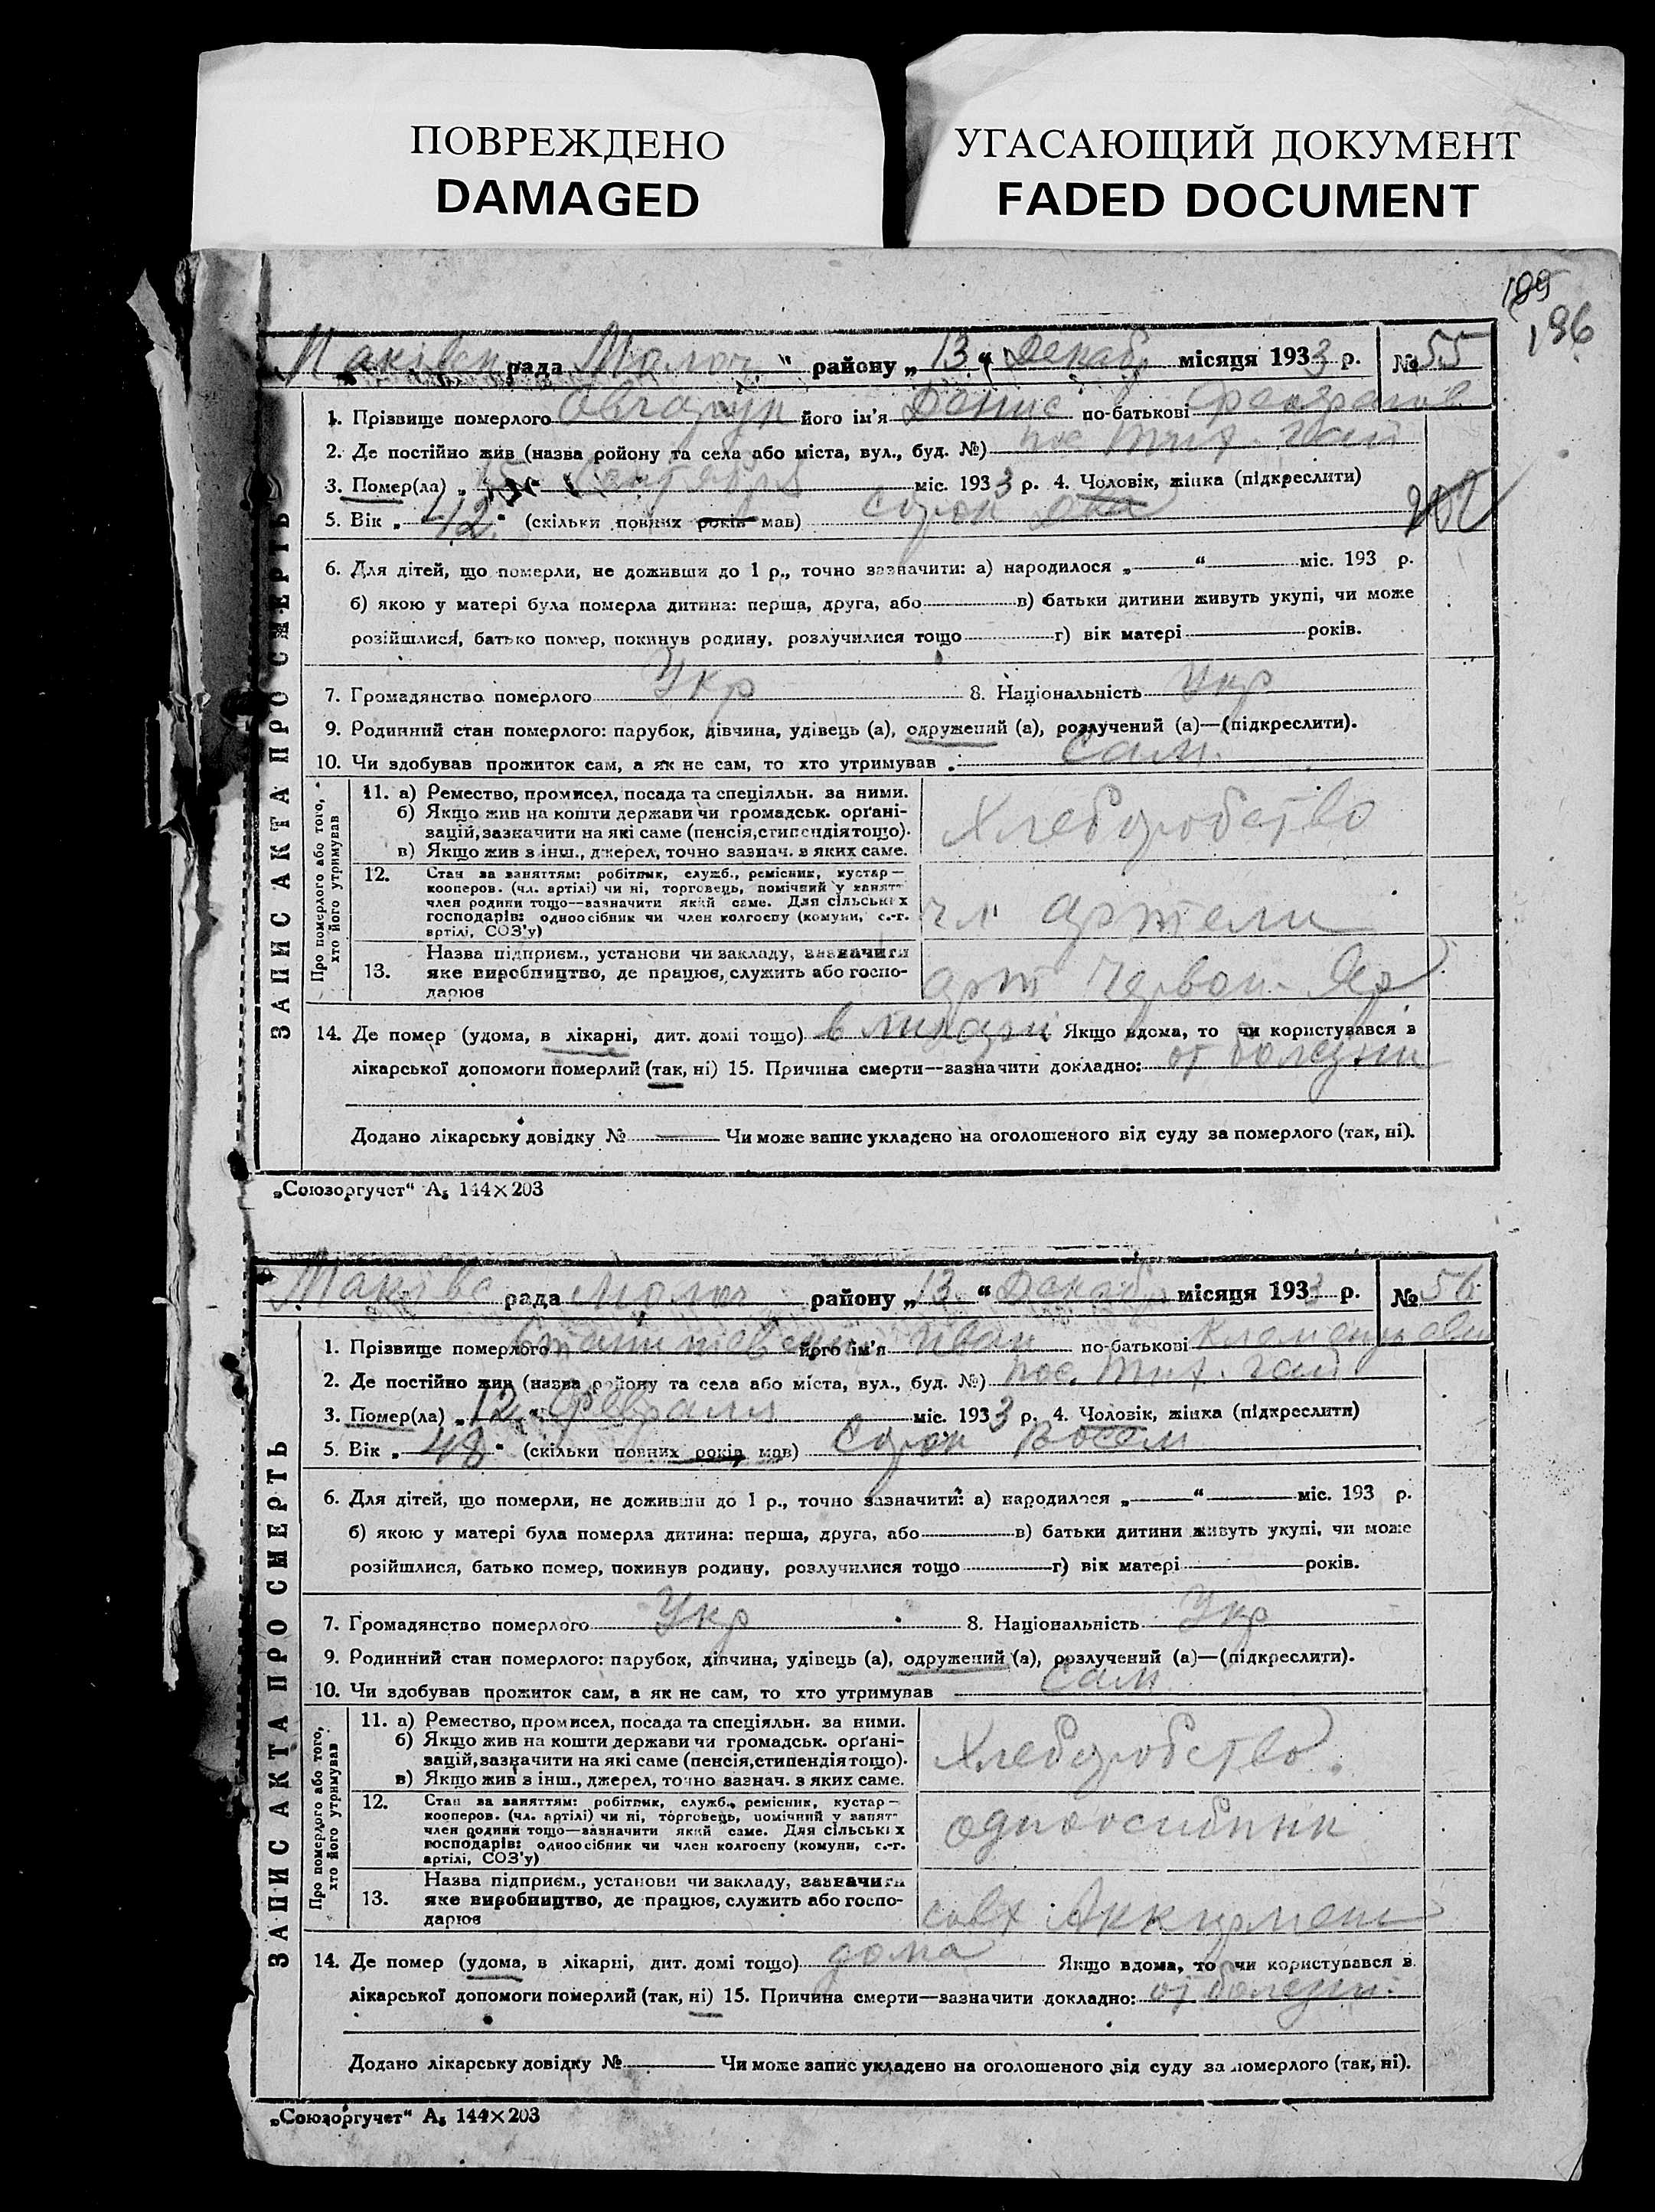 ПОВРЕЖДЕНО
DAMAGED
УГАСАЮЩИЙ ДОКУМЕНТ
FADED DOCUMENT
196
рада Молоч району „ 13 “ Декабр місяця 1933 р. № 55
ЗАПИС АКТА ПРО СМЕРТЬ
1. Прізвище померлого його ім'я Денис по-батькові
2. Де постійно жив (назва ройону та села або міста, вул., буд. №) пос Тих. Гай
3. Помер(ла) „ Сентября міс. 1933 р. 4. Чоловік, жінка (підкреслити)
5. Вік „ 42 “ (скільки повних років мав) Сорок два
6. Для дітей, що померли, не доживши до 1 р., точно зазначити: а) народилося „ “ міс. 193 р.
б) якою у матері була померла дитина: перша, друга, або в) батьки дитини живуть укупі, чи може
розійшлися, батько помер, покинув родину, розлучилися тощо г) вік матері років.
7. Громадянство померлого Укр 8. Національність Укр
9. Родинний стан померлого: парубок, дівчина, удівець (а), одружений (а), розлучений (а)—(підкреслити).
10. Чи здобував прожиток сам, а як не сам, то хто утримував сам.
Про померлого або того, хто його утримував
11. а) Ремество, промисел, посада та спеціяльн. за ними.
б) Якщо жив на кошти держави чи громадськ. орґані-
зацій, зазначити на які саме (пенсія, стипендія тощо).
в) Якщо жив з інш., джерел, точно зазнач. з яких саме.
Хлеборобство
12. Стан за заняттям: робітник, служб., ремісник, кустар—
кооперов. (чл. артілі) чи ні, торговець, помічний у занят-
член родини тощо—зазначити який саме. Для сільських
господарів: одноосібник чи член колгоспу (комуни, с.-г.
артілі, СОЗ'у)
чл артели
13. Назва підприєм., установи чи закладу, зазначити
яке виробництво, де працює, служить або госпо-
дарює
арт Червон. Яр
14. Де помер (удома, в лікарні, дит. домі тощо) в Якщо вдома, то чи користувався в
лікарської допомоги померлий (так, ні) 15. Причина смерти—зазначити докладно: от болезни
Додано лікарську довідку № Чи може запис укладено на оголошеного від суду за померлого (так, ні).
„Союзоргучет“ А5 144×203
рада Молоч району „ 13 “ Декабр місяця 1933 р. № 56
ЗАПИС АКТА ПРО СМЕРТЬ
1. Прізвище померлого його ім'я Иван по-батькові
2. Де постійно жив (назва ройону та села або міста, вул., буд. №) пос. Тих. Гай.
3. Помер(ла) „ 12 “ Февраля міс. 1933 р. 4. Чоловік, жінка (підкреслити)
5. Вік „ 48 “ (скільки повних років мав) Сорок Восем
6. Для дітей, що померли, не доживши до 1 р., точно зазначити: а) народилося „ “ міс. 193 р.
б) якою у матері була померла дитина: перша, друга, або в) батьки дитини живуть укупі, чи може
розійшлися, батько помер, покинув родину, розлучилися тощо г) вік матері років.
7. Громадянство померлого Укр 8. Національність Укр
9. Родинний стан померлого: парубок, дівчина, удівець (а), одружений (а), розлучений (а)—(підкреслити).
10. Чи здобував прожиток сам, а як не сам, то хто утримував сам
Про померлого або того, хто його утримував
11. а) Ремество, промисел, посада та спеціяльн. за ними.
б) Якщо жив на кошти держави чи громадськ. орґані-
зацій, зазначити на які саме (пенсія, стипендія тощо).
в) Якщо жив з інш., джерел, точно зазнач. з яких саме.
Хлеборобство.
12. Стан за заняттям: робітник, служб., ремісник, кустар—
кооперов. (чл. артілі) чи ні, торговець, помічний у занят-
член родини тощо—зазначити який саме. Для сільських
господарів: одноосібник чи член колгоспу (комуни, с.-г.
артілі, СОЗ'у)
одноосибник
13. Назва підприєм., установи чи закладу, зазначити
яке виробництво, де працює, служить або госпо-
дарює
совх Аккермень
14. Де помер (удома, в лікарні, дит. домі тощо) дома Якщо вдома, то чи користувався в
лікарської допомоги померлий (так, ні) 15. Причина смерти—зазначити докладно: от болезни.
Додано лікарську довідку № Чи може запис укладено на оголошеного від суду за померлого (так, ні).
„Союзоргучет“ А5 144×203